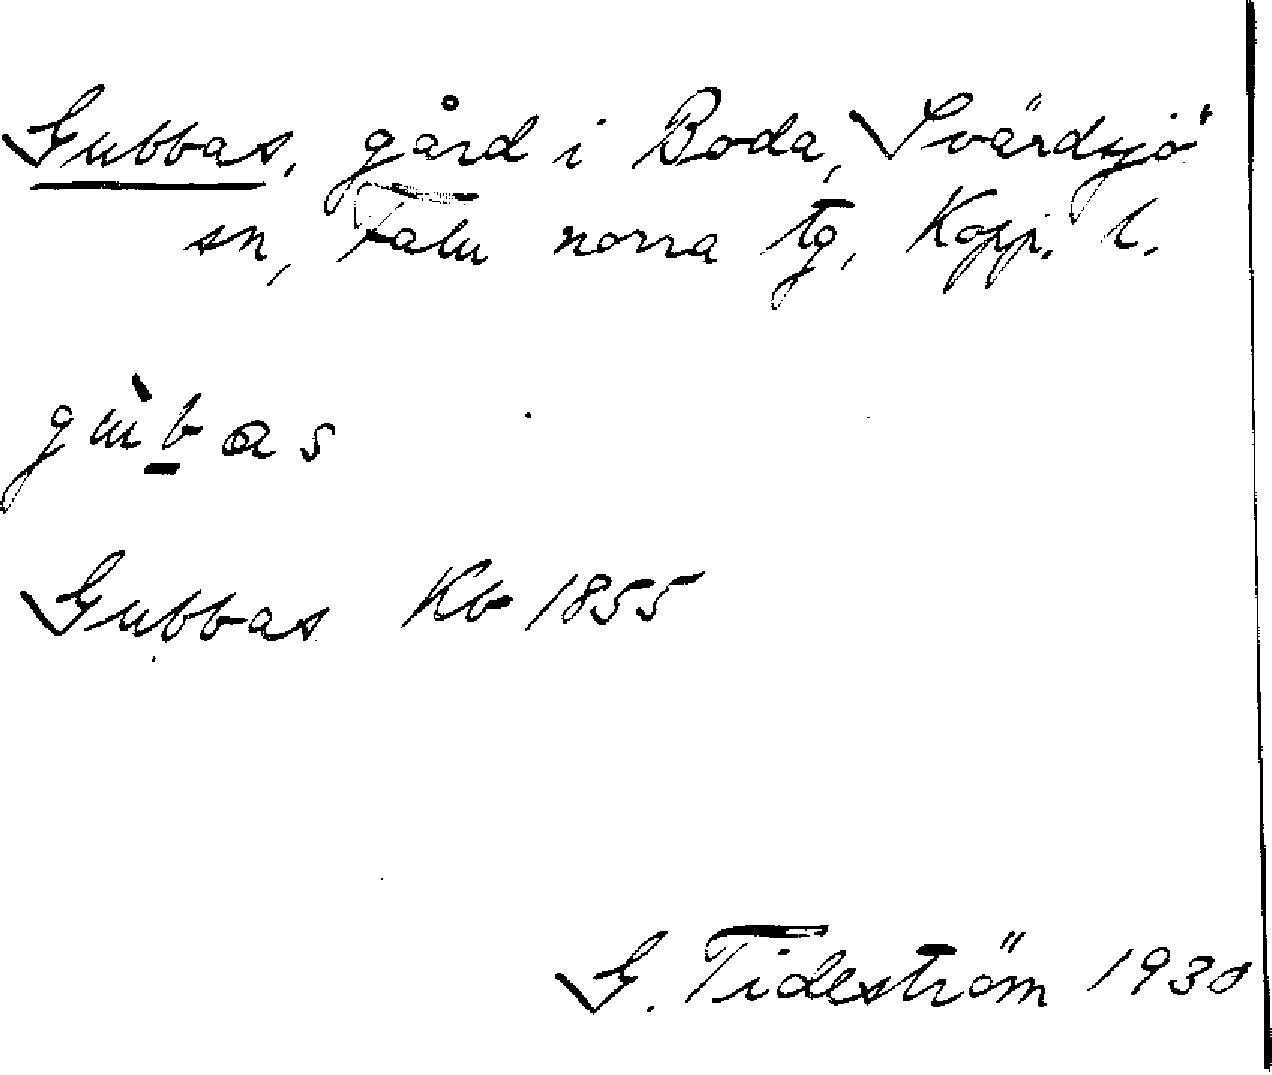 Gubbas, gård i Boda, Svärdsjö
sn, Falu norra tg, Kopp. l.
gùb̲as
Gubbas Kb 1855
G. Tideström 1930